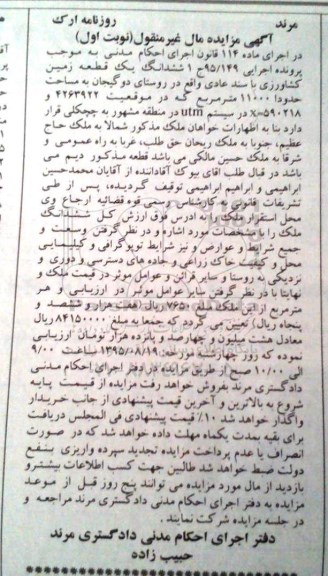 مرند
روزنامه ارک
آگهی مزایده مال غیرمنقول(نوبت اول)
در اجرای ماده ۱۱۴ قانون اجرای احکام مدنی به موجب
پرونده اجرایی ۹۵/۱۴۹ج ۱ ششدانگ یک قطعه زمین
کشاورزی با سند عادی واقع در روستای دوگیجان به مساحت
حدودا ۱۱۰۰۰ مترمربع که در موقعیت ۴۲۶۳۹۲۲ و
x=۵۹۰۲۱۸ در سیستم utm در منطقه مشهور به چچکلی قرار
دارد بنا به اظهارات خواهان ملک مذکور شمالا به ملک حاج
عظیم، جنوبا به ملک ریحان حق طلب، غربا به راه عمومی و
شرقا به ملک حسین مالکی می باشد قطعه مذکور دیم می
باشد در قبال طلب آقای بیوک آقادانده از آقایان محمدحسین
ابراهیمی و ابراهیم ابراهیمی توقیف گردیده، پس از طی
تشریفات قانونی به کارشناس رسمی قوه قضائیه ارجاع وی
محل استقرار ملک را به آدرس فوق ارزش کل ششدانگ
ملک را با مشخصات مورد اشاره و در نظر گرفتن وسعت و
جمیع شرایط و عوارض و نیز شرایط توپوگرافی و کلیمایی
محل و کیفیت خاک زراعی و جاده های دسترسی و دوری و
نزدیکی به روستا و سایر قرائن و عوامل موثر در قیمت ملک و
نهایتا با در نظر گرفتن سایر عوامل موثر در ارزیابی و هر
مترمربع از این ملک مبلغ ۷۶۵۰ ریال (هفت هزار و ششصد و
پنجاه ریال) تعیین می گردد که جمعا به مبلغ ۸۴۱۵۰۰۰۰ ریال
معادل هشت میلیون و چهارصد و پانزده هزار تومان ارزیابی
نموده که روز چهارشنبه مورخه ۱۳۹۵/۰۸/۱۹ ساعت ۹/۰۰
الی ۱۰/۰۰ صبح از طریق مزایده در دفتر اجرای احکام مدنی
دادگستری مرند بفروش خواهد رفت مزایده از قیمت پایه
شروع به بالاترین و آخرین قیمت پیشنهادی از جانب خریدار
واگذار خواهد شد ۱۰٪ قیمت پیشنهادی فی المجلس دریافت
برای بقیه بمدت یکماه مهلت داده خواهد شد که در صورت
انصراف یا عدم پرداخت مزایده تجدید سپرده واریزی بنفع
دولت ضبط خواهد شد طالبین جهت کسب اطلاعات بیشتر و
بازدید از مال مورد مزایده می توانند پنج روز قبل از موعد
مزایده به دفتر اجرای احکام مدنی دادگستری مرند مراجعه و
در جلسه مزایده شرکت نمایند .
دفتر اجرای احکام مدنی دادگستری مرند
حبیب زاده